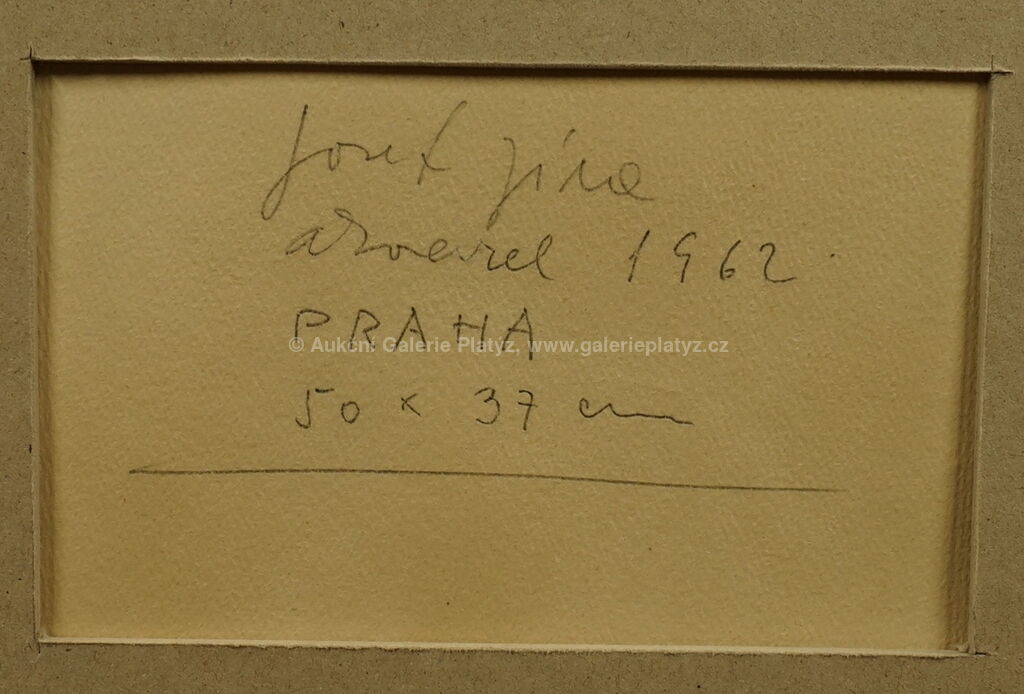 Josef Jíra
akvarel 1962
PRAHA
© Aukční Galerie Platýz, www.galerieplatyz.cz
50 x 37 cm